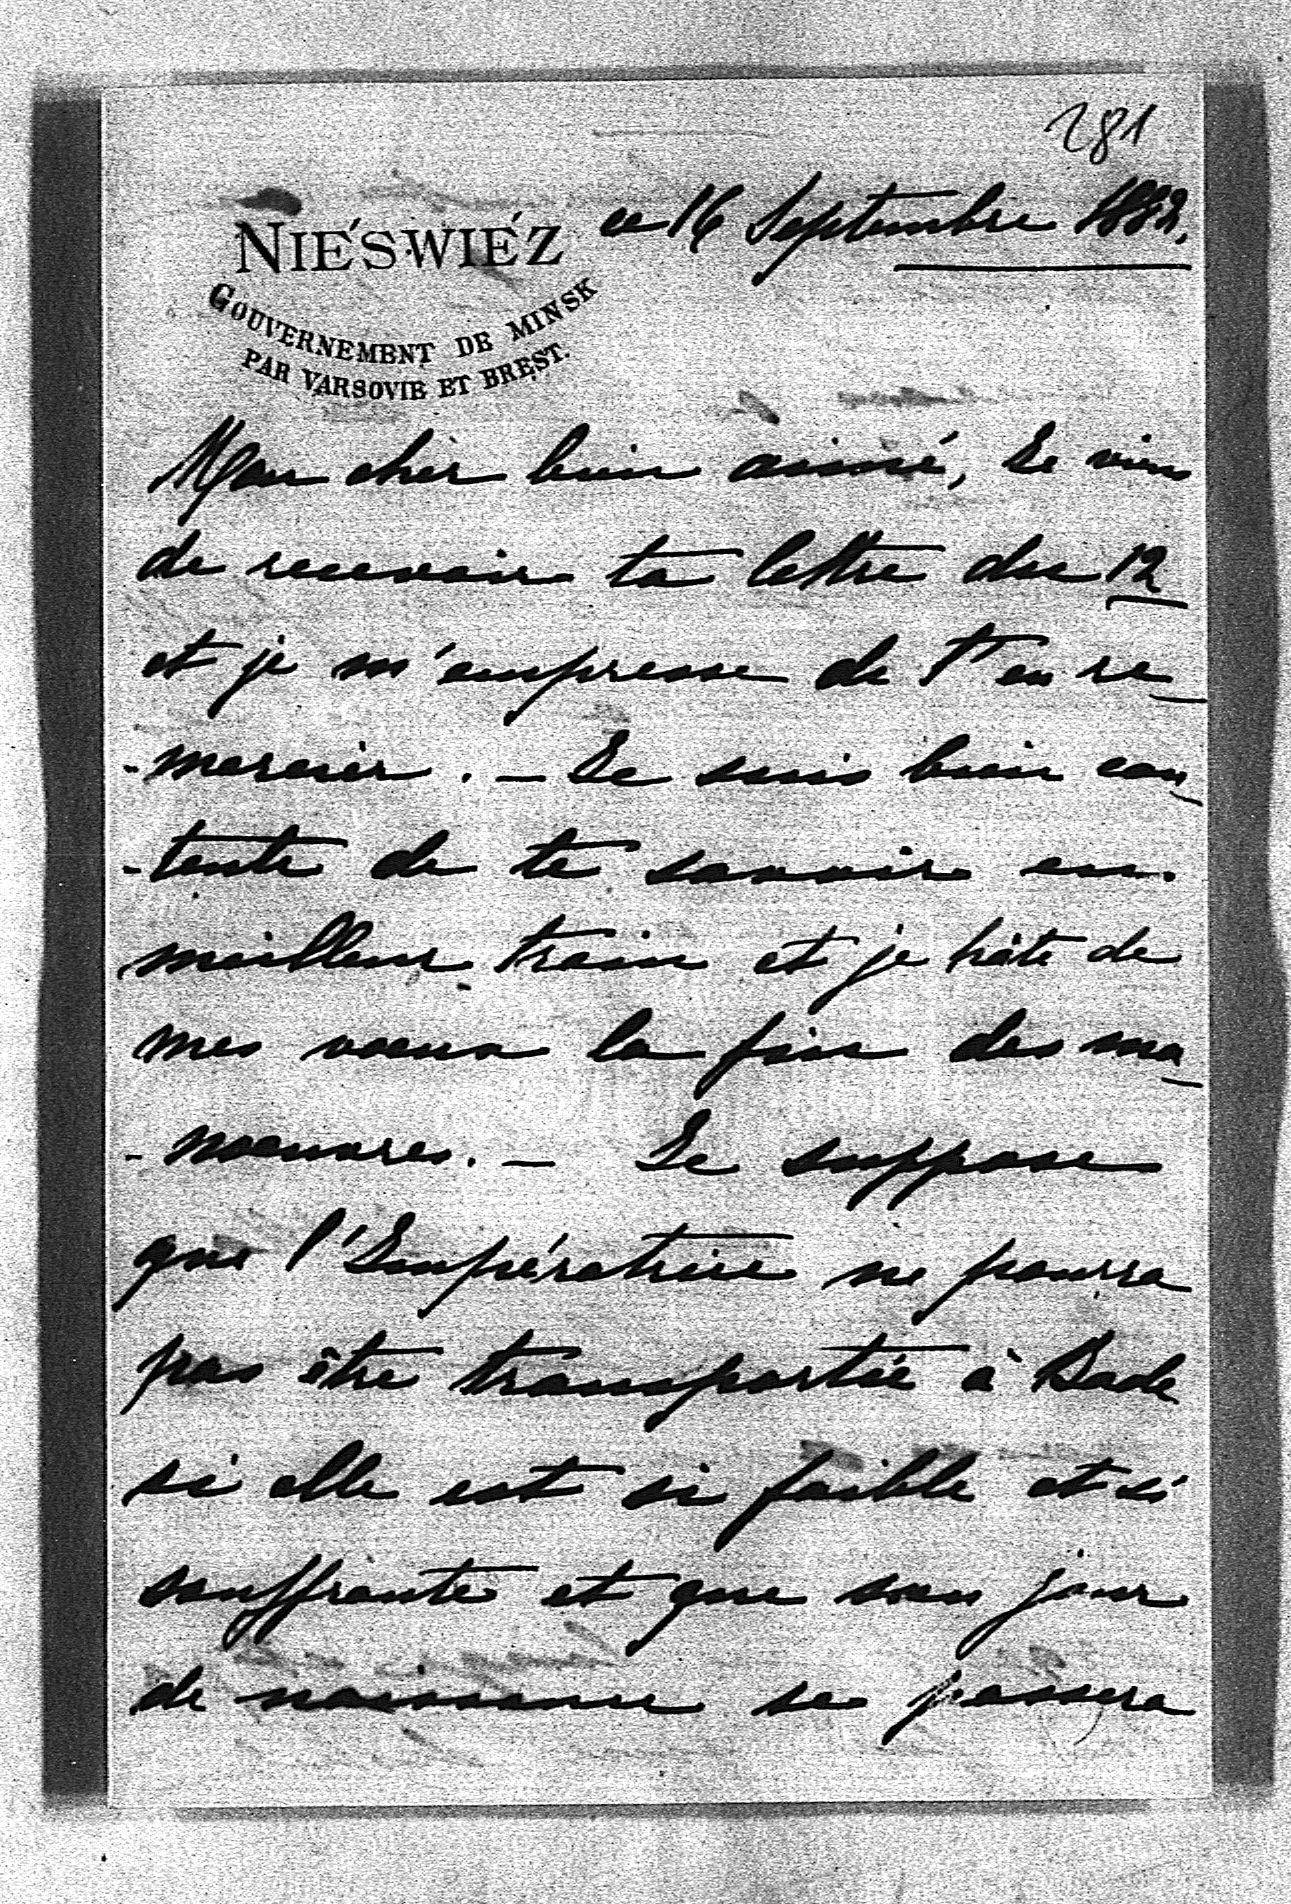 281
NIEŚWIÉZ
ce 16 Septembre 1888.
GOUVERNEMENT DE MINSK
PAR VARSOVIE ET BREST.
Mon cher bien aimé, Je viens
de recevoir ta lettre du 12
et je m'empresse de t'en re-
-mercier. - Je suis bien con-
-tente de te savoir en
meilleur train et je hâte de
mes voeux la fin des ma-
-noeuvres. - Je suppose
que l'Impératrice ne pourra
pas être transportée à Bade
si elle est si faible et si
souffrante et que son jour
de naissance se passera